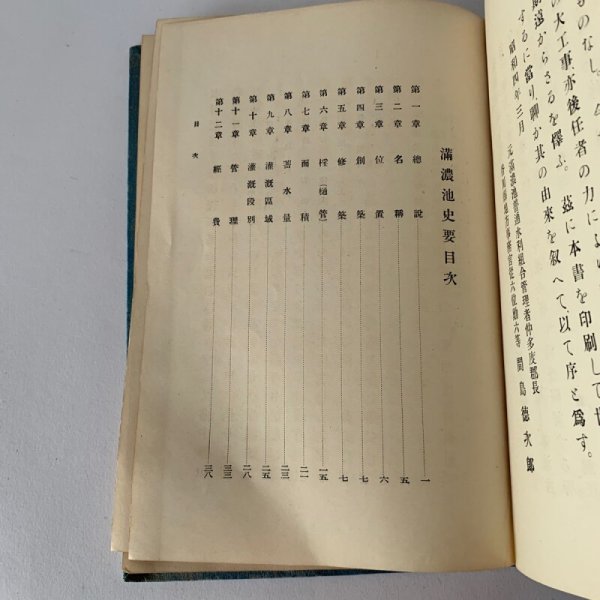 ものなし。
の火工事亦後任者の力に
前途からさるを惧ふ。茲に本書を印刷して
するに當り聊か其の由來を叙へて、以て序と爲す。
昭和四年三月
元滿濃池普通水利組合管理者仲多度郡長
從六位勳六等 間島德次郎
滿濃池史要目次
第一章 總說 一
第二章 名稱 五
第三章 位置 六
第四章 創築 七
第五章 修築 七
第六章 桴(樋管) 一五
第七章 面積 二一
第八章 蓄水量 二三
第九章 灌漑區域 二五
第十章 灌漑段別 二八
第十一章 管理 三三
第十二章 經費 三八
目次